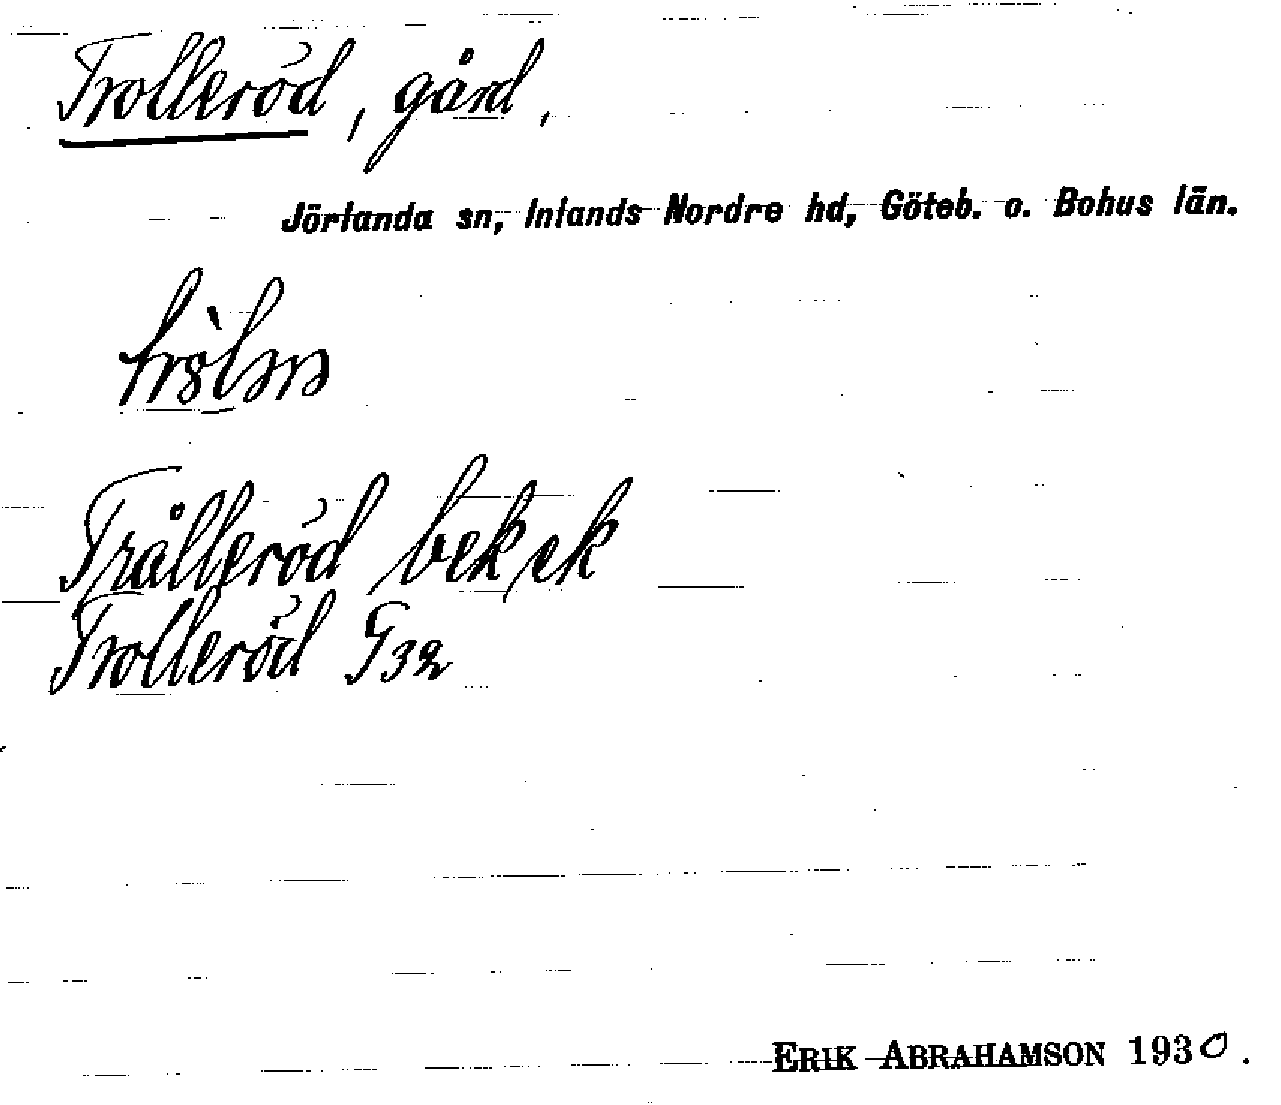 Trolleröd, gård,
Jörlanda sn, Inlands Nordre hd, Göteb. o. Bohus län.
Trålleröd bek ek
Trolleröd G32
ERIK ABRAHAMSON 1930.